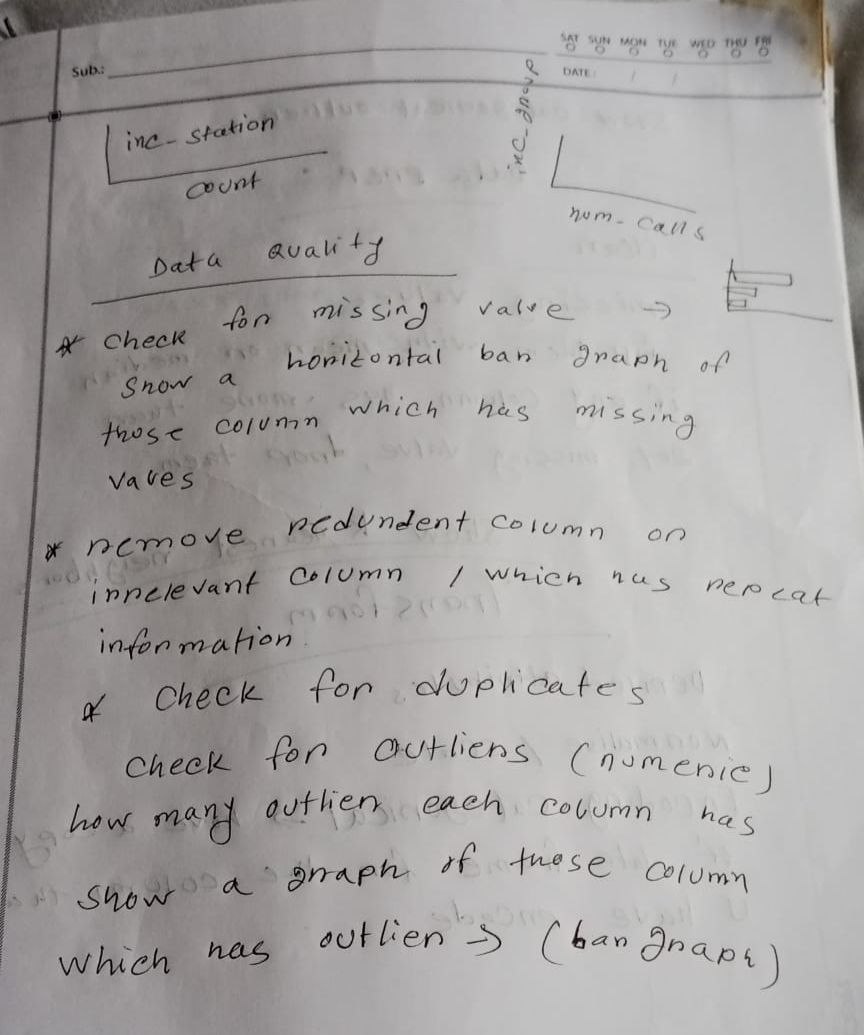 SAT SUN MON TUE WED THU FRI
Sub.:
DATE: / /
inc-station
count
inc-group
num-calls
Data Quality
* check for missing valve →
Show a horizontal bar graph of
those column which has missing
vaves
* remove redundent column or
irrelevant column / which has repeat
information
* Check for duplicates
Check for Outliers (numeric)
how many outlier each column has
Show a graph of those column
which has outlier → (bar graph)